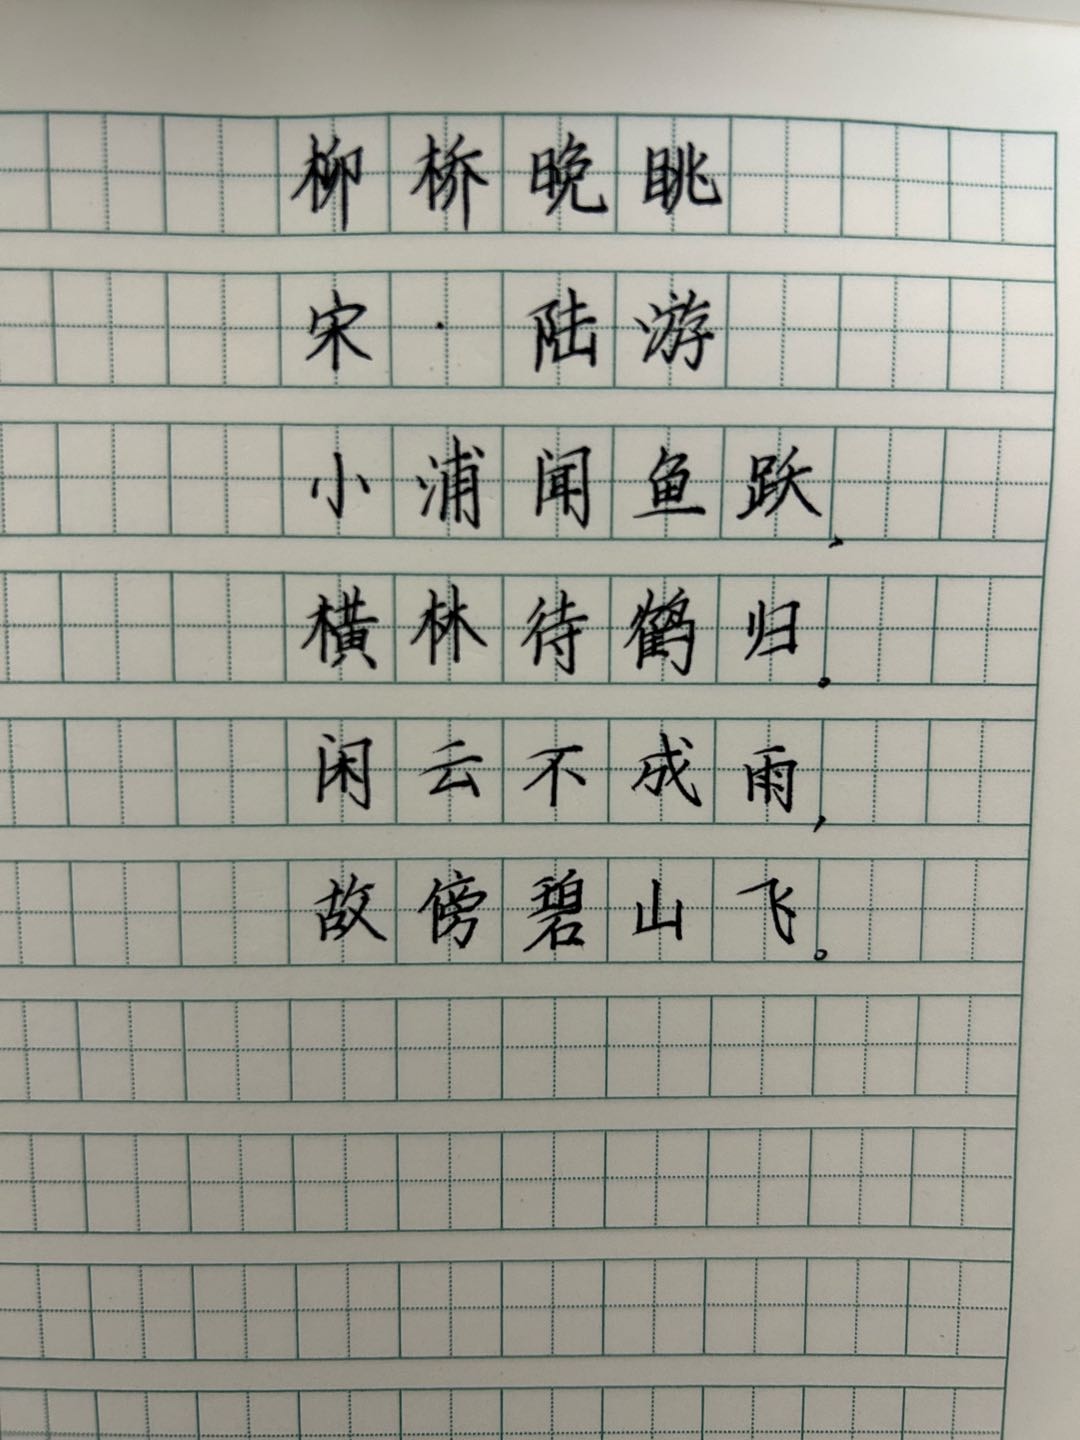 柳桥晚眺
宋·陆游
小浦闻鱼跃，
横林待鹤归。
闲云不成雨，
故傍碧山飞。